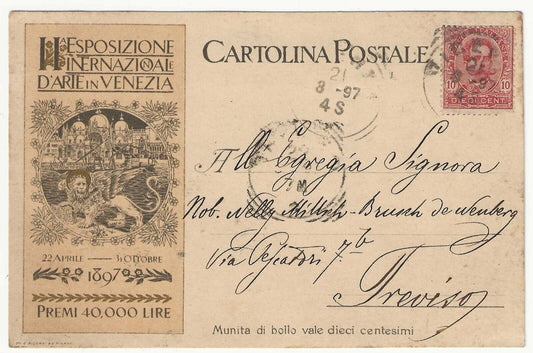 IIª ESPOSIZIONE
INTERNAZIONALE
D'ARTE IN VENEZIA
22 APRILE — 31 OTTOBRE
1897
PREMI 40,000 LIRE
CARTOLINA POSTALE
21
8 -97
4 S
10 10
DIECI CENT.
All Egregia Signora
Nob. Nelly Millich - Brusch de Neuberg
Via Pescatori 7b
Treviso
Munita di bollo vale dieci centesimi